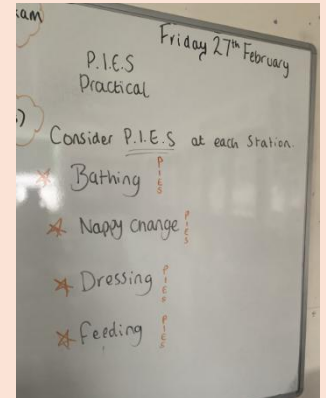 am)
Friday 27th February
P.I.E.S
Practical
Consider P.I.E.S at each Station.
Bathing PIES
Nappy change PIES
Dressing PIES
Feeding PIES